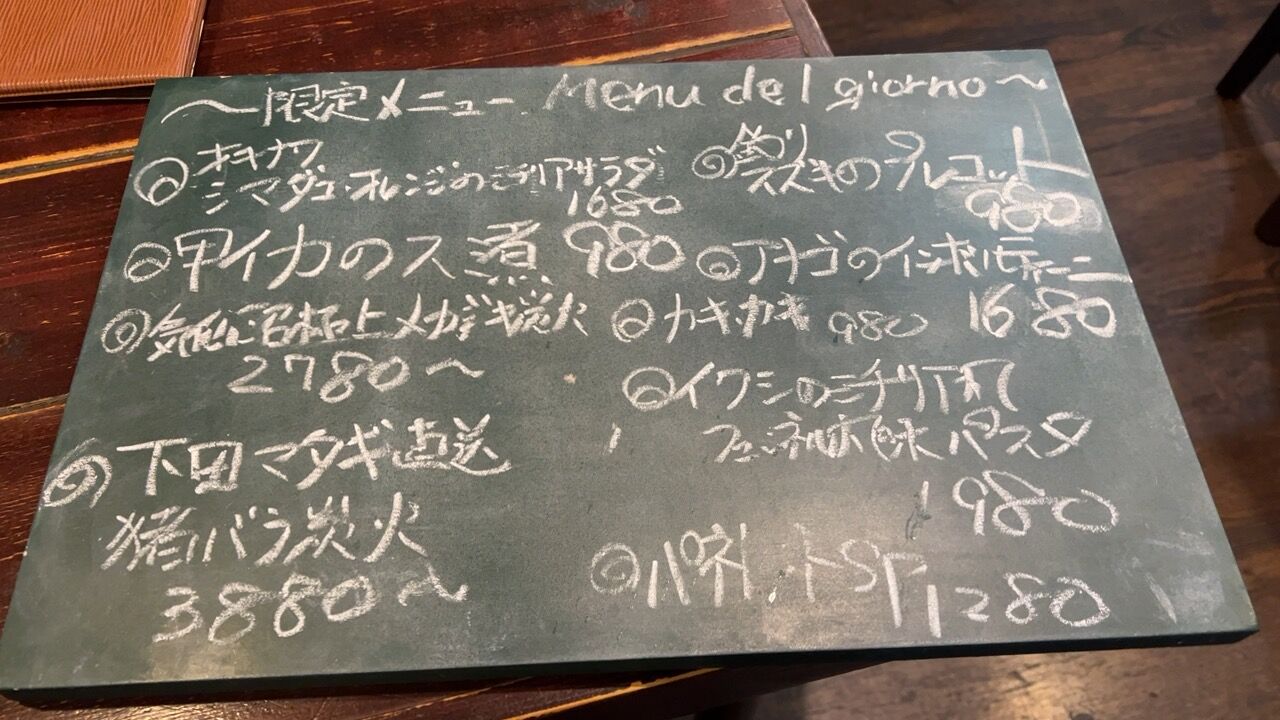 〜限定メニュー Menu del giorno〜
オキナワ
シマダコ・オレンジのシチリアサラダ
1680
甲イカのスミ煮 980
気仙沼極上メカジキ炭火
2780〜
下田マタギ直送
猪バラ炭火
3880〜
釣り
スズキのプレコット
980
アナゴのインボルティーニ
1680
カキ・カキ 980
イワシのシチリア風
パスタ
1980
1280